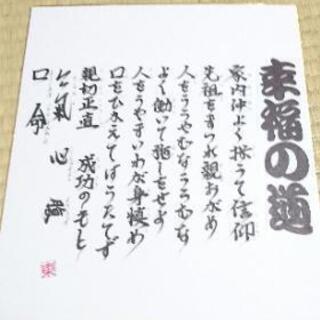 来福の道
家内仲よく揃うて信仰
先祖をまつれ親おがめ
人をうらやむなうらむな
よく働いて施しをせよ
人をうやまいわが身慎め
口をひかえてはらたてず
親切正直 成功のもと
氣 心
口 命